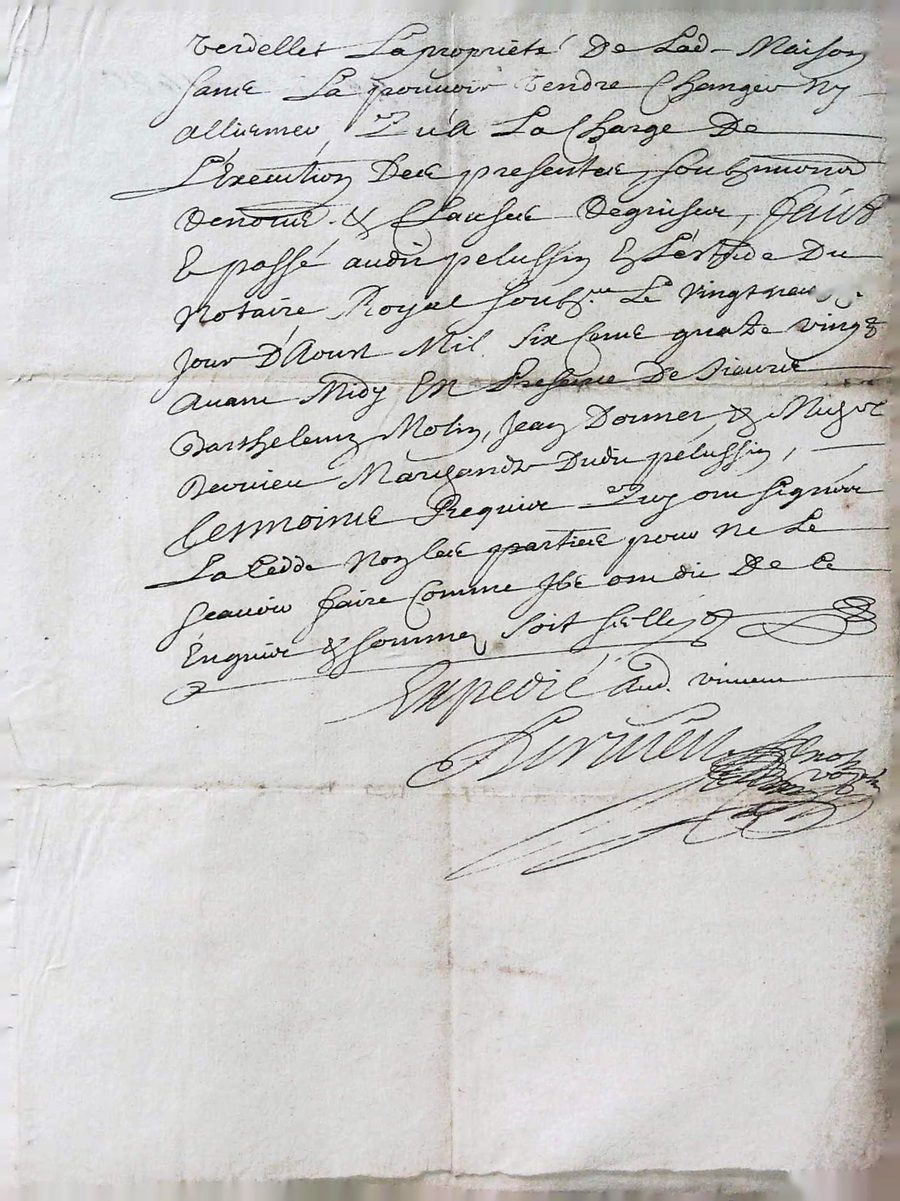 Verdellet La proprieté De Lad. Maison
sans La pouvoir Vendre Changer Ny
allienner, Qu'a La Charge De
L'Execution Des presentes, soubzmissions
& Clauses
E passé audit pelussin E L'estude Du
Notaire Royal soub.ne Le Vingt neuf
Jour D'Aoust Mil six Cens quatre vingt
avant Midy En Presence De sieurs
Barthelemy Molin, Jean & Michel
Marchandz Dudit pelussin,
Tesmoins Requis Quy ont signés
La Cedde Non les parties pour ne Le
scavoir faire Comme Ils ont dit De Ce
Enquis & sommés soit sellé
Expedié aud.